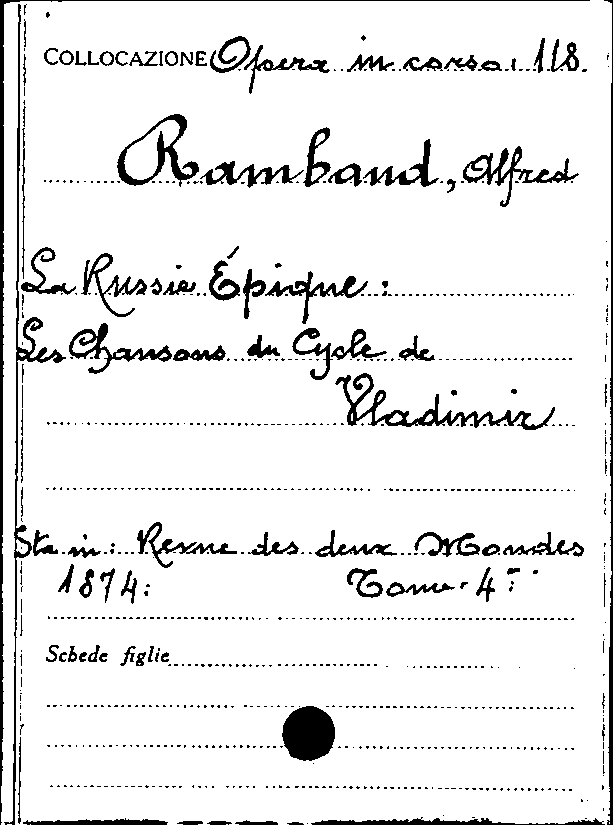 COLLOCAZIONE Opera in corso: 118.
Rambaud, Alfred
La Russie Épique:
Les Chansons du Cycle de
Vladimir
Sta in: Revue des deux Mondes
1874: Tome 4:
Schede figlie